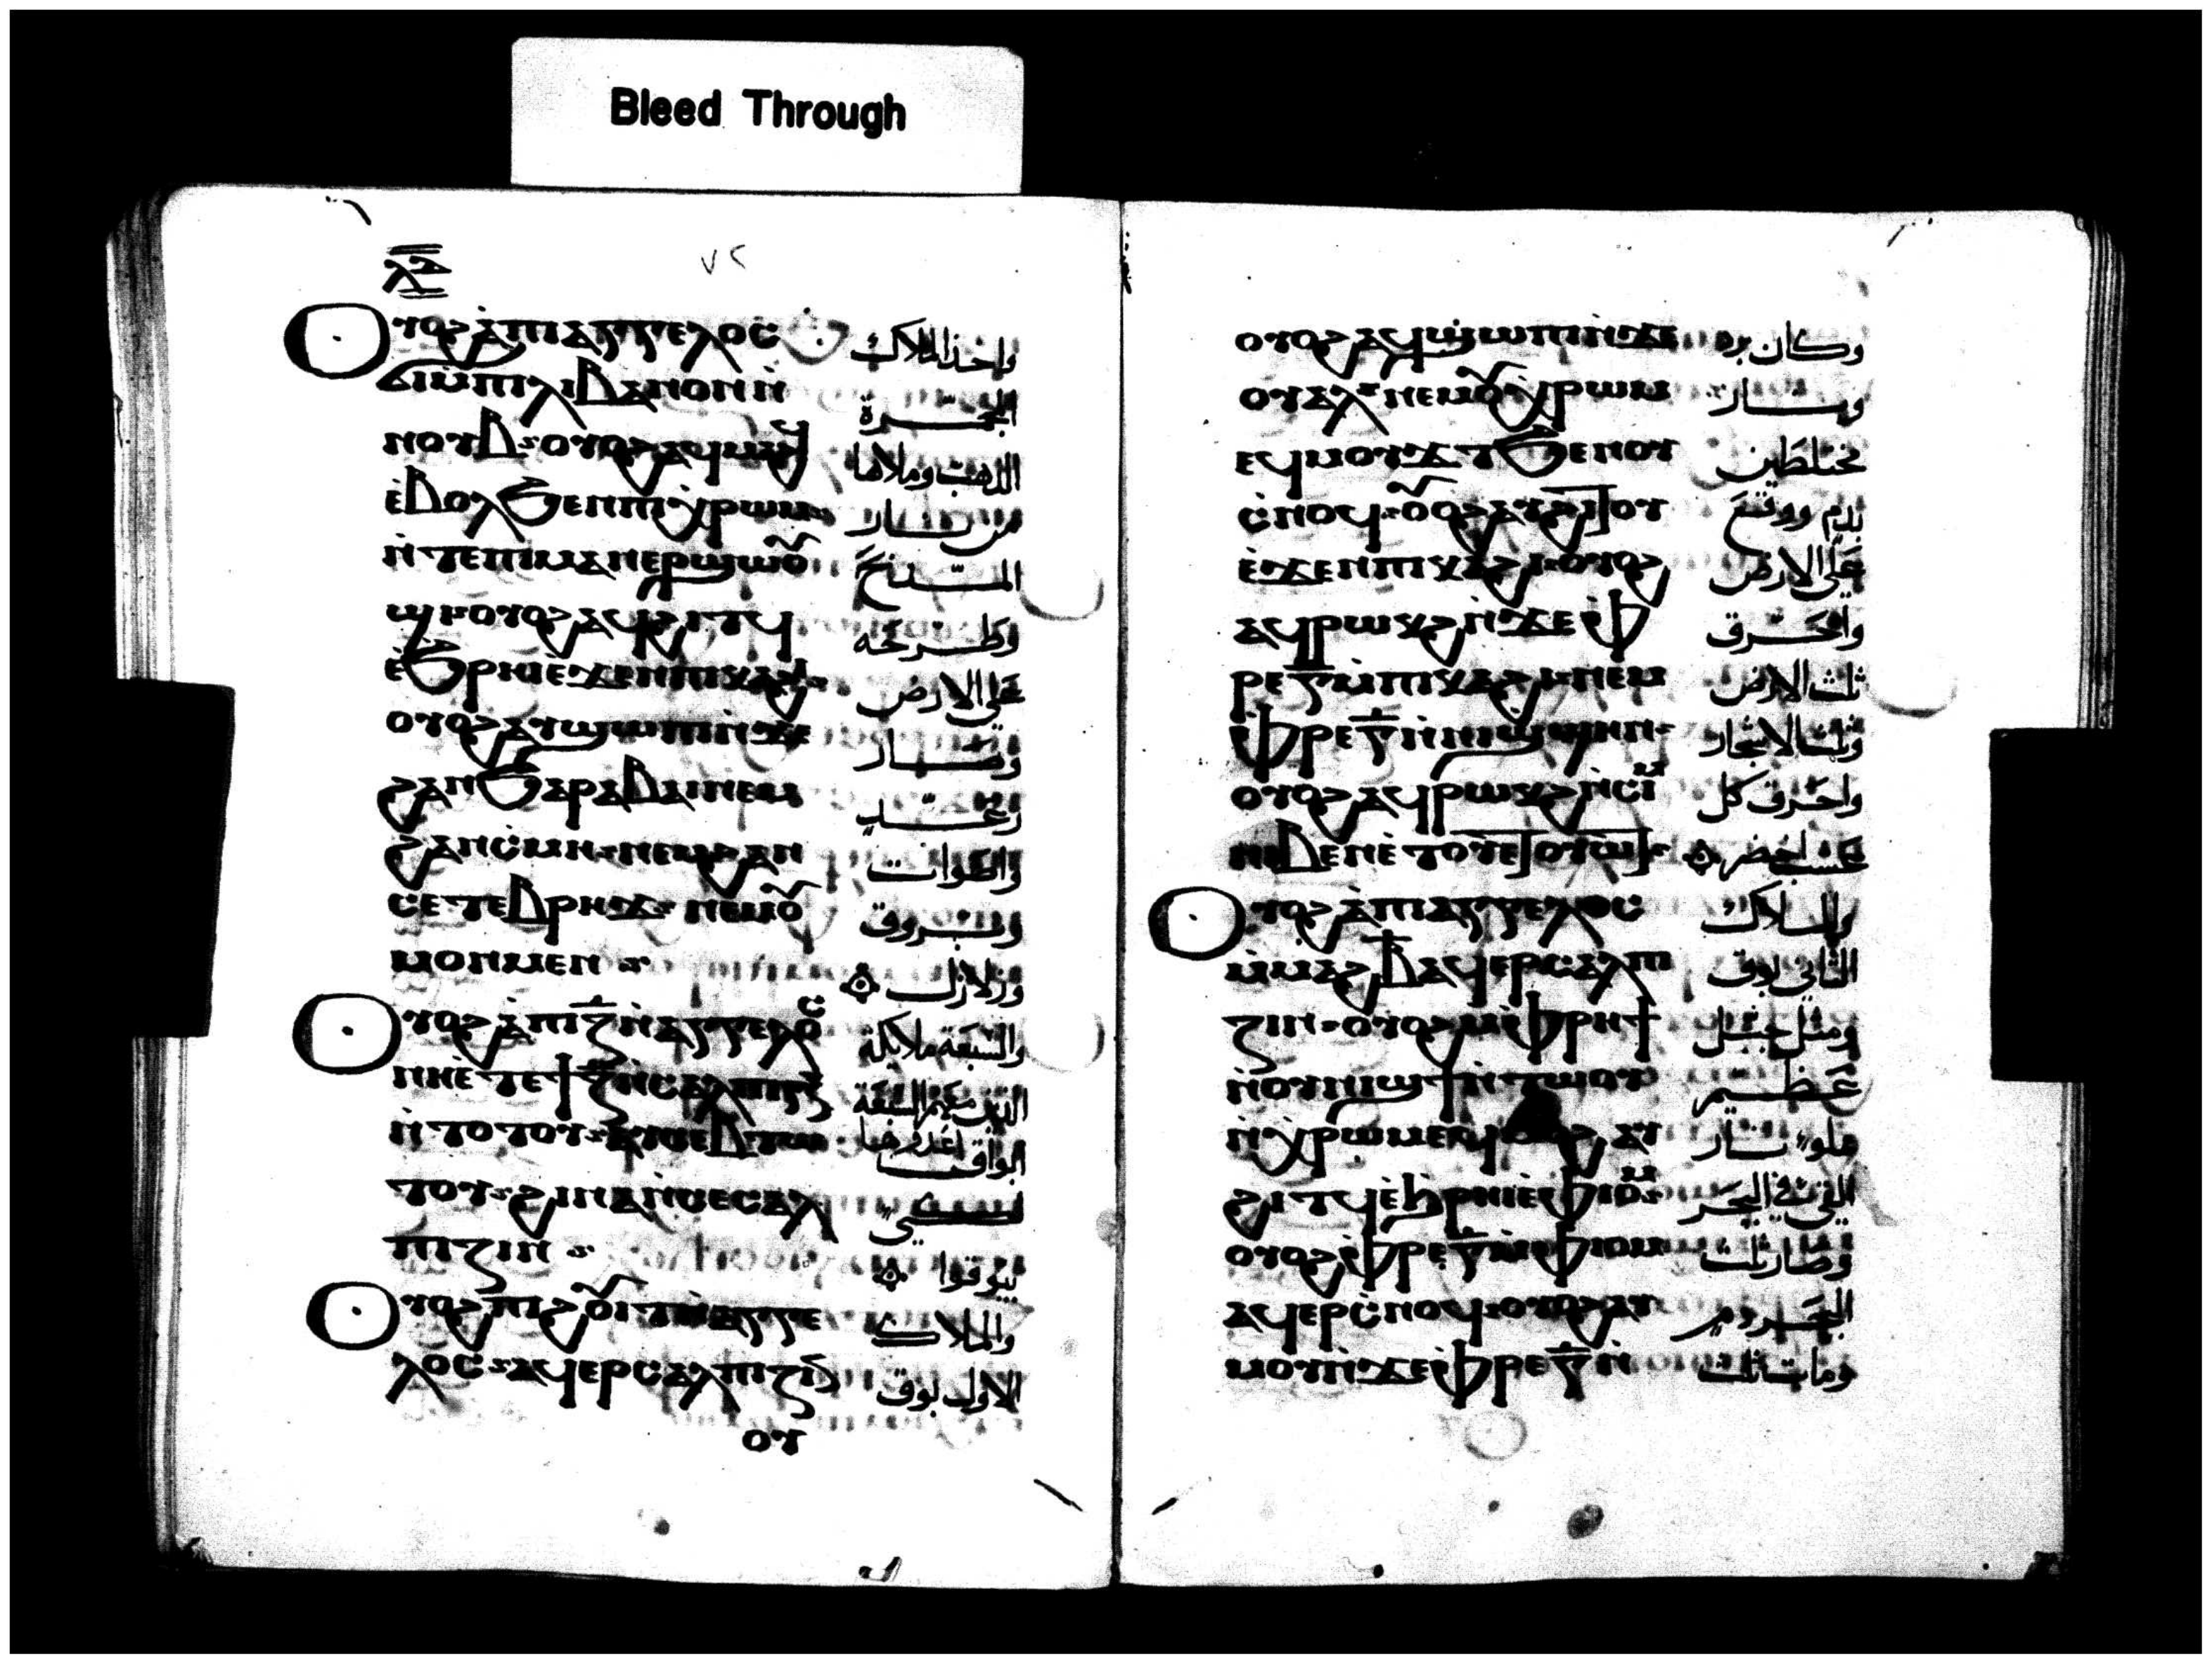 Bleed Through
ⲗ︦ⲃ︦
٧٢
ⲟⲩⲟϩ ⲁ̀ⲡⲓⲁⲅⲅⲉⲗⲟⲥ واخذ الملاك
ϭⲓⲙ̀ⲡⲓⲗⲓⲃⲁⲛⲟⲛ ⲛ̀ المجمرة
ⲛⲟⲩⲃ ⲟⲩⲟϩ ⲁϥⲙⲁϩϥ الذهب وملاها
ⲉ̀ⲃⲟⲗϧⲉⲛⲡⲓⲭ̀ⲣⲱⲙ من نار
ⲛ̀ⲧⲉⲡⲓⲙⲁⲛⲉⲣϣⲱⲟⲩ المذبح
ϣⲓ ⲟⲩⲟϩ ⲁϥϩⲓⲧϥ وطرحه
ⲉ̀ϧⲣⲏⲓⲉϫⲉⲛⲡⲓⲕⲁϩⲓ على الارض
ⲟⲩⲟϩ ⲁⲩϣⲱⲡⲓⲛ̀ϫⲉ وصار
ϩⲁⲛϧⲁⲣⲁⲃⲁⲓ ⲛⲉⲙ رعد
ϩⲁⲛⲥ̀ⲙⲏ ⲛⲉⲙϩⲁⲛ واصوات
ⲥⲉⲧⲉⲃⲣⲏϫ ⲛⲉⲙⲟⲩ وبروق
ⲙⲟⲛⲙⲉⲛ وزلازل
ⲟⲩⲟϩ ⲁ̀ⲡⲓⲍ̅ⲛ̀ⲁⲅⲅⲉⲗⲟⲥ والسبعة ملايكة
ⲛⲏⲉ̀ⲧⲉϯⲍ̅ⲛ̀ⲥⲁⲗⲡⲓⲅⲝ الذين معهم السبعة
ⲛ̀ⲧⲟⲧⲟⲩ ⲁⲩⲥⲉⲃⲧⲱ ابواق اعدوها
ⲧⲟⲩ ϩⲓⲛⲁⲛ̀ⲥⲉⲥⲁⲗ لكي
ⲡⲓⲍⲓⲛ يبوقوا
ⲟⲩⲟϩ ⲡⲓϩⲟⲩⲓⲧⲛ̀ⲁⲅⲅⲉ والملاك
ⲗⲟⲥ ⲁϥⲉⲣⲥⲁⲗⲡⲓⲍⲓⲛ الاول بوق
ⲟⲩ
ⲟⲩⲟϩ ⲁϥϣⲱⲡⲓⲛ̀ϫⲉ وكان برد
ⲟⲩⲁⲗ ⲛⲉⲙⲟⲩⲭ̀ⲣⲱⲙ ونار
ⲉϥⲙⲟⲩϫⲧ ϧⲉⲛⲟⲩ مختلطين
ⲥ̀ⲛⲟϥ ⲟⲩⲟϩ ⲁⲩϩⲓⲟⲩ بدم ووقع
ⲉ̀ϫⲉⲛⲡⲓⲕⲁϩⲓ ⲟⲩⲟϩ على الارض
ⲁϥⲣⲱⲕϩ ⲛ̀ϫⲉⲫ̀ واحترق
ⲣⲉⲅ̅ⲙ̀ⲡⲓⲕⲁϩⲓ ⲛⲉⲙ ثلث الارض
ⲫ̀ⲣⲉⲅ̅ⲛ̀ⲛⲓϣ̀ϣⲏⲛ وثلث الاشجار
ⲟⲩⲟϩ ⲁϥⲣⲱⲕϩ ⲛ̀ⲥⲓⲙ واحترق كل
ⲛⲓⲃⲉⲛⲉ̀ⲧⲟⲩⲉⲧⲟⲩⲱⲧ عشب اخضر
ⲟⲩⲟϩ ⲁ̀ⲡⲓⲁⲅⲅⲉⲗⲟⲥ والملاك
ⲙ̀ⲙⲁϩⲃ̅ ⲁϥⲉⲣⲥⲁⲗⲡⲓ الثاني بوق
ⲍⲓⲛ ⲟⲩⲟϩ ⲙ̀ⲫ̀ⲣⲏϯ ومثل جبل
ⲛ̀ⲟⲩⲛⲓϣϯ ⲛ̀ⲧⲱⲟⲩ عظيم
ⲛ̀ⲭ̀ⲣⲱⲙ ⲉϥⲙⲟϩ ⲁⲩ مملو نار
ϩⲓⲧϥ ⲉ̀ϧⲣⲏⲓⲉ̀ⲫⲓⲟⲙ القي في البحر
ⲟⲩⲟϩ ⲫ̀ⲣⲉⲅ̅ⲙ̀ⲫⲓⲟⲙ وصار ثلث
ⲁϥⲉⲣⲥ̀ⲛⲟϥ ⲟⲩⲟϩ ⲁⲩ البحر دم
ⲙⲟⲩⲛ̀ϫⲉⲫ̀ⲣⲉⲅ̅ⲛ̀ ومات ثلث